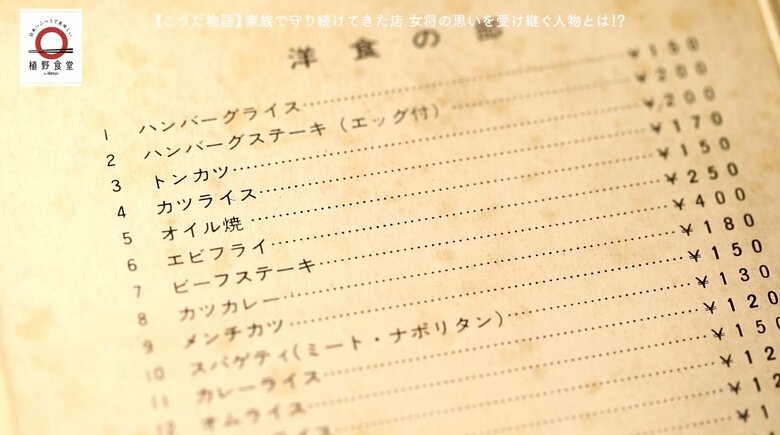 【こうだ物語】家族で守り続けてきた店 女将の思いを受け継ぐ人物とは!?
日本一ふつうで美味しい
植野食堂
by dancyu
洋食の
1 ハンバーグライス……¥180
2 ハンバーグステーキ（エッグ付）……¥200
3 トンカツ……¥200
4 カツライス……¥170
5 オイル焼……¥150
6 エビフライ……¥250
7 ビーフステーキ……¥400
8 カツカレー……¥180
9 メンチカツ……¥150
10 スパゲティ(ミート・ナポリタン)……¥130
11 カレーライス……¥120
12 オムライス……¥150